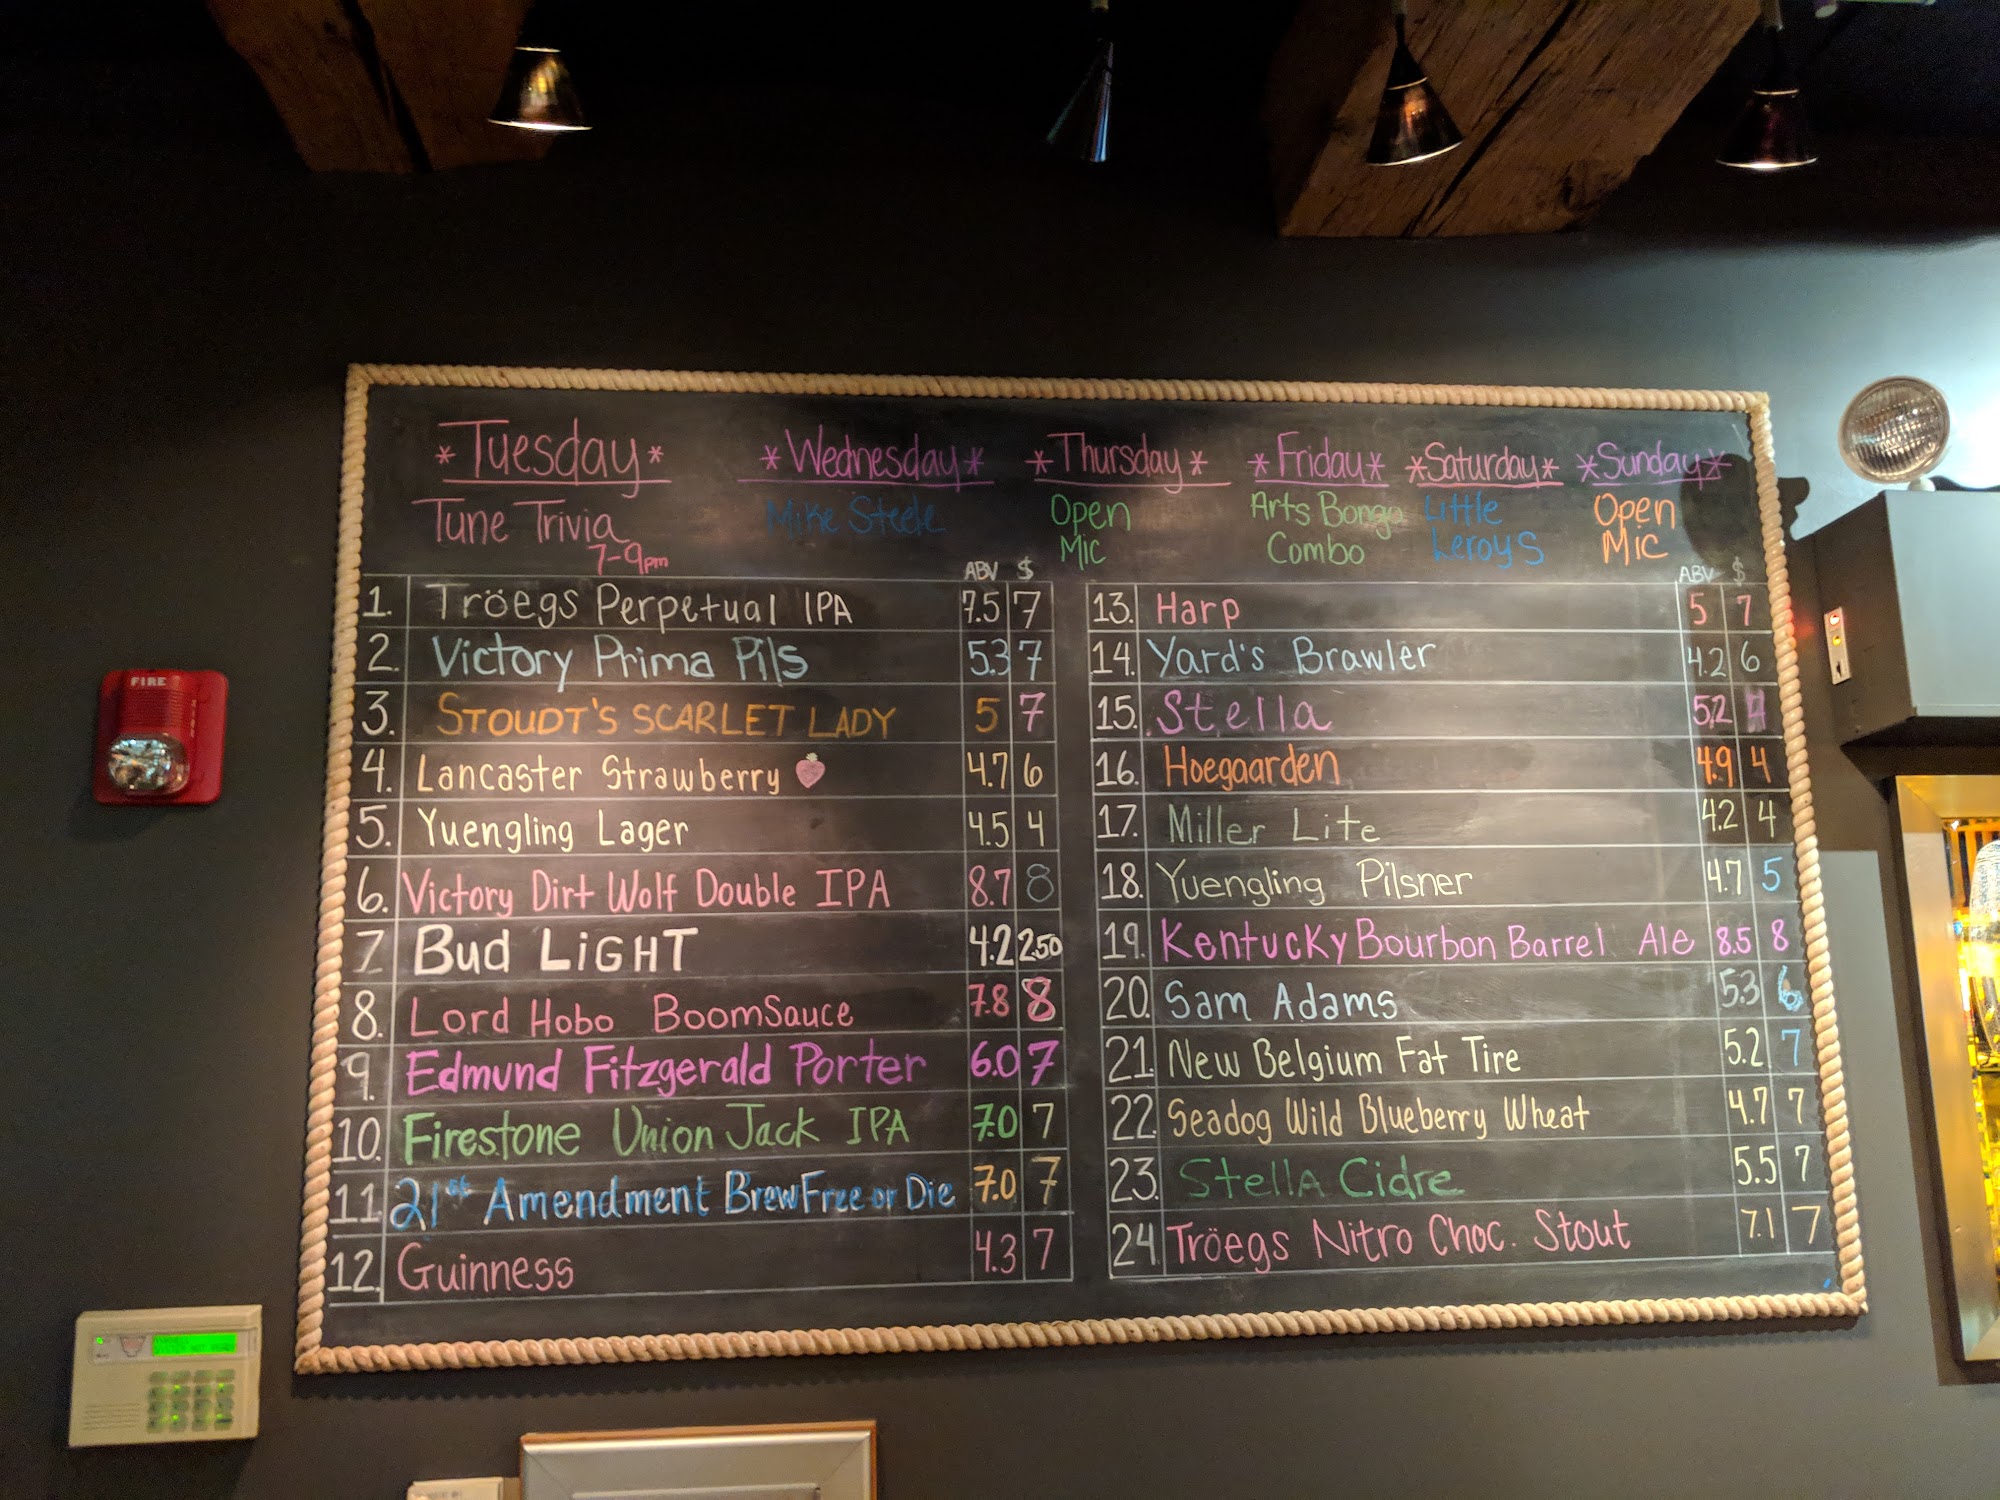 *Tuesday* *Wednesday* *Thursday* *Friday* *Saturday* *Sunday*
Tune Trivia
7-9pm
Mike Steele
Open
Mic
Arts Bongo
Combo
Little
Leroys
Open
Mic
ABV $
1. Tröegs Perpetual IPA 7.5 7
2. Victory Prima Pils 5.3 7
3. STOUDT'S SCARLET LADY 5 7
4. Lancaster Strawberry 4.7 6
5. Yuengling Lager 4.5 4
6. Victory Dirt Wolf Double IPA 8.7 8
7 Bud LiGHT 4.2 2.50
8. Lord Hobo BoomSauce 7.8 8
9. Edmund Fitzgerald Porter 6.0 7
10. Firestone Union Jack IPA 7.0 7
11. 21st Amendment Brew Free or Die 7.0 7
12. Guinness 4.3 7
ABV $
13. Harp 5 7
14. Yard's Brawler 4.2 6
15. Stella 5.2
16. Hoegaarden 4.9 4
17. Miller Lite 4.2 4
18. Yuengling Pilsner 4.7 5
19. Kentucky Bourbon Barrel Ale 8.5 8
20. Sam Adams 5.3 6
21. New Belgium Fat Tire 5.2 7
22. Seadog Wild Blueberry Wheat 4.7 7
23. Stella Cidre 5.5 7
24. Tröegs Nitro Choc. Stout 7.1 7
FIRE